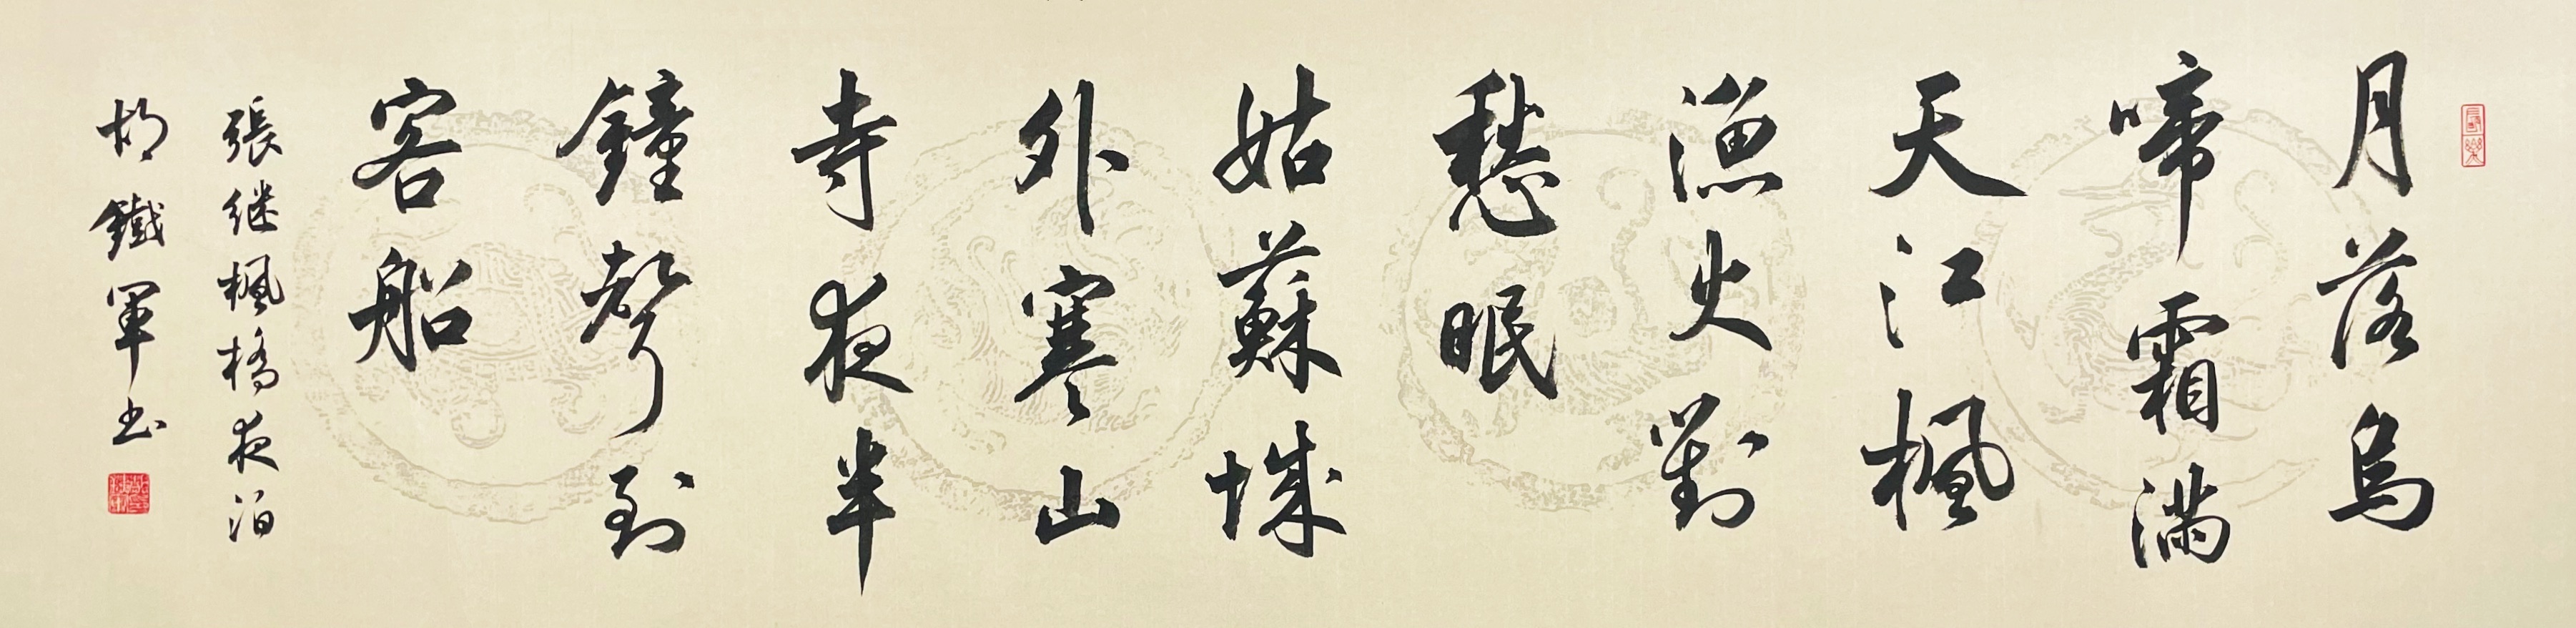 月落烏
啼霜滿
天江楓
漁火對
愁眠
姑蘇城
外寒山
寺夜半
鐘聲到
客船
張继楓橋夜泊
胡鐵軍书